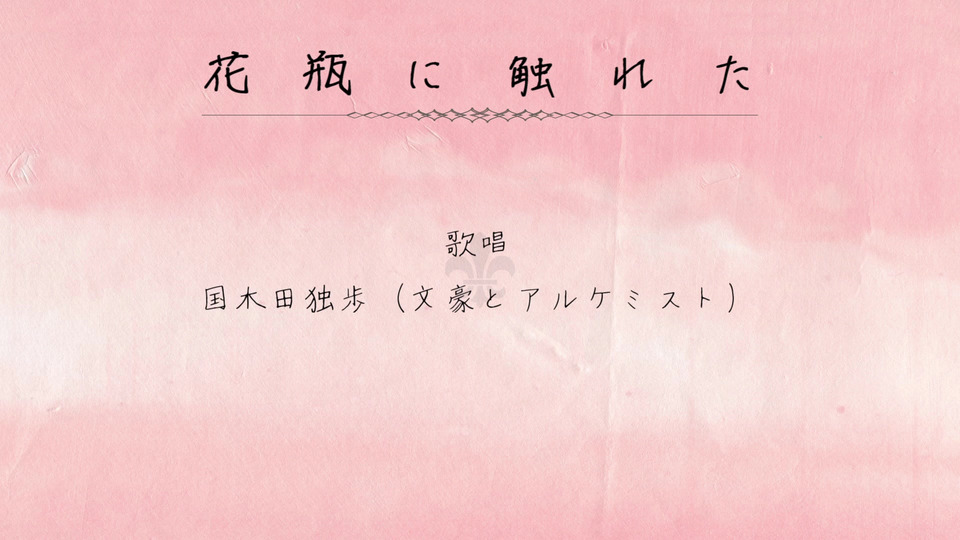 花瓶に触れた
歌唱
国木田独歩（文豪とアルケミスト）